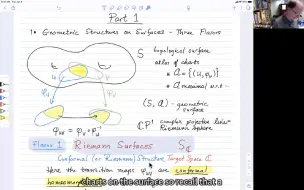 Part 1
1• Geometric Structures on Surfaces - Three Flavors
S topological surface
atlas of charts
a = {(U, φ_U)}
a maximal w.r.t -
(S, a) - geometric surface
φ_U φ_V
CP¹ complex projective line = Riemann sphere
Flavor 1 Riemann Surfaces S_C
Conformal (or Riemann) Structure, Target Space C
Here the transition maps are conformal
charts on the surface so recall that a